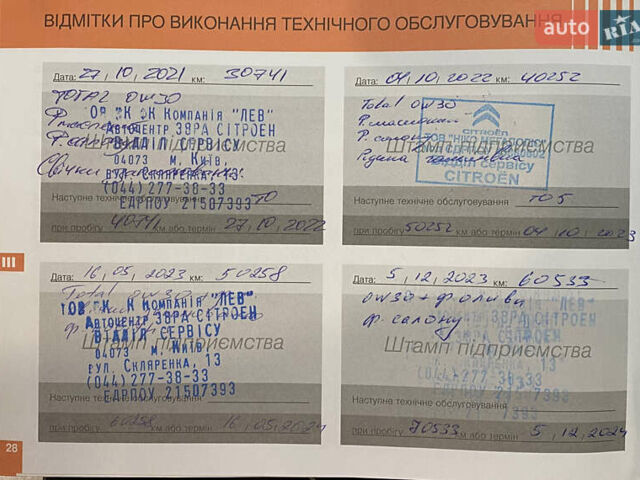 ВІДМІТКИ ПРО ВИКОНАННЯ ТЕХНІЧНОГО ОБСЛУГОВУВАННЯ
auto RIA
Дата: 27,10,2021 км: 30741
TOTAL 0W30
КОМПАНІЯ "ЛЕВ"
АВТОЦЕНТР ЗВРА СІТРОЕН
ВІДДІЛ СЕРВІСУ
04073 м. Київ,
вул. СКЛЯРЕНКА, 13
(044) 277-38-33
ЄДРПОУ 21507393
Штамп підприємства
Наступне технічне обслуговування ТО
при пробігу 40741 км або термін 27,10,2022
Дата: 04,10,2022 км: 40252
Total 0W30
CITROËN
Штамп підприємства
Відділ сервісу
CITROËN
Наступне технічне обслуговування ТО 5
при пробігу 50252 км або термін 04,10,2023
Дата: 16,05,2023 км: 50258
Total 0W30
КОМПАНІЯ "ЛЕВ"
АВТОЦЕНТР ЗВРА СІТРОЕН
ВІДДІЛ СЕРВІСУ
04073 м. Київ
вул. СКЛЯРЕНКА, 13
(044) 277-38-33
ЄДРПОУ 21507393
Штамп підприємства
Наступне технічне обслуговування
при пробігу 60258 км або термін 16,05,2024
Дата: 5,12,2023 км: 60533
0W30 + ф оливи
ф. салону
Штамп підприємства
Наступне технічне обслуговування
при пробігу 70533 км або термін 5,12,2024
III
28